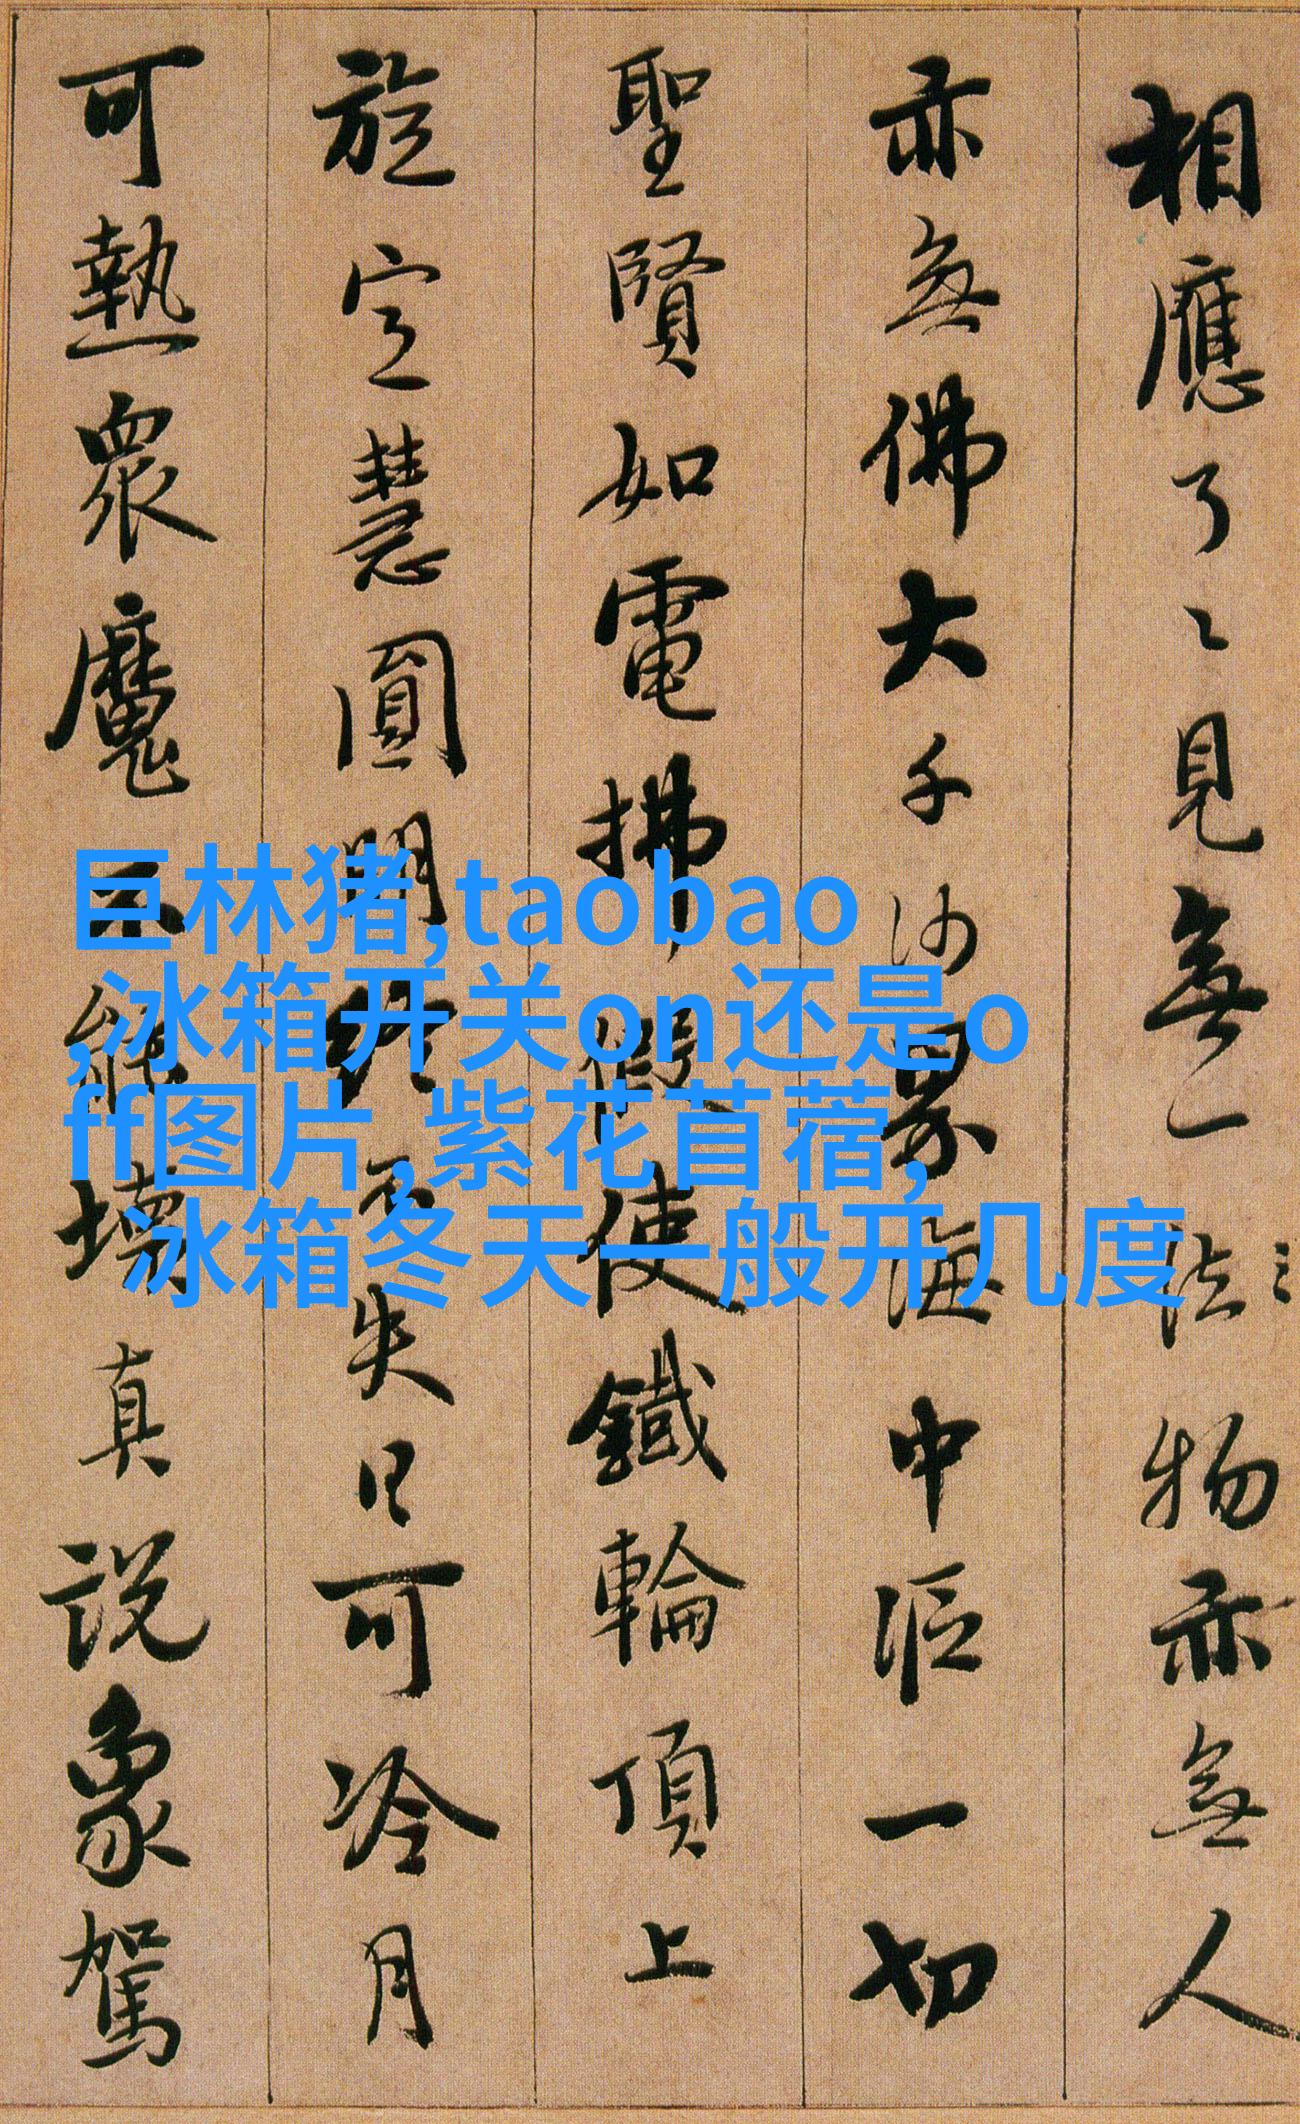 相應了〻見無一法物亦無人
亦無佛大千沙界海中漚一切
聖賢如電拂假使鐵輪頂上
旋定慧圓明終不失日可冷月
可熱眾魔不能壞真說象駕
巨林猪,taobao
,冰箱开关on还是o
ff图片,紫花苜蓿,
冰箱冬天一般开几度